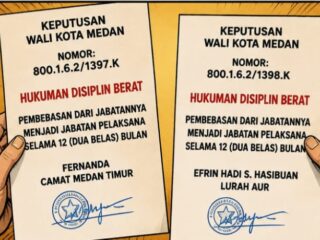 KEPUTUSAN
WALI KOTA MEDAN
NOMOR:
800.1.6.2/1397.K
HUKUMAN DISIPLIN BERAT
PEMBEBASAN DARI JABATANNYA
MENJADI JABATAN PELAKSANA
SELAMA 12 (DUA BELAS) BULAN
FERNANDA
CAMAT MEDAN TIMUR
KEPUTUSAN
WALI KOTA MEDAN
NOMOR:
800.1.6.2/1398.K
HUKUMAN DISIPLIN BERAT
PEMBEBASAN DARI JABATANNYA
MENJADI JABATAN PELAKSANA
SELAMA 12 (DUA BELAS) BULAN
EFRIN HADI S. HASIBUAN
LURAH AUR